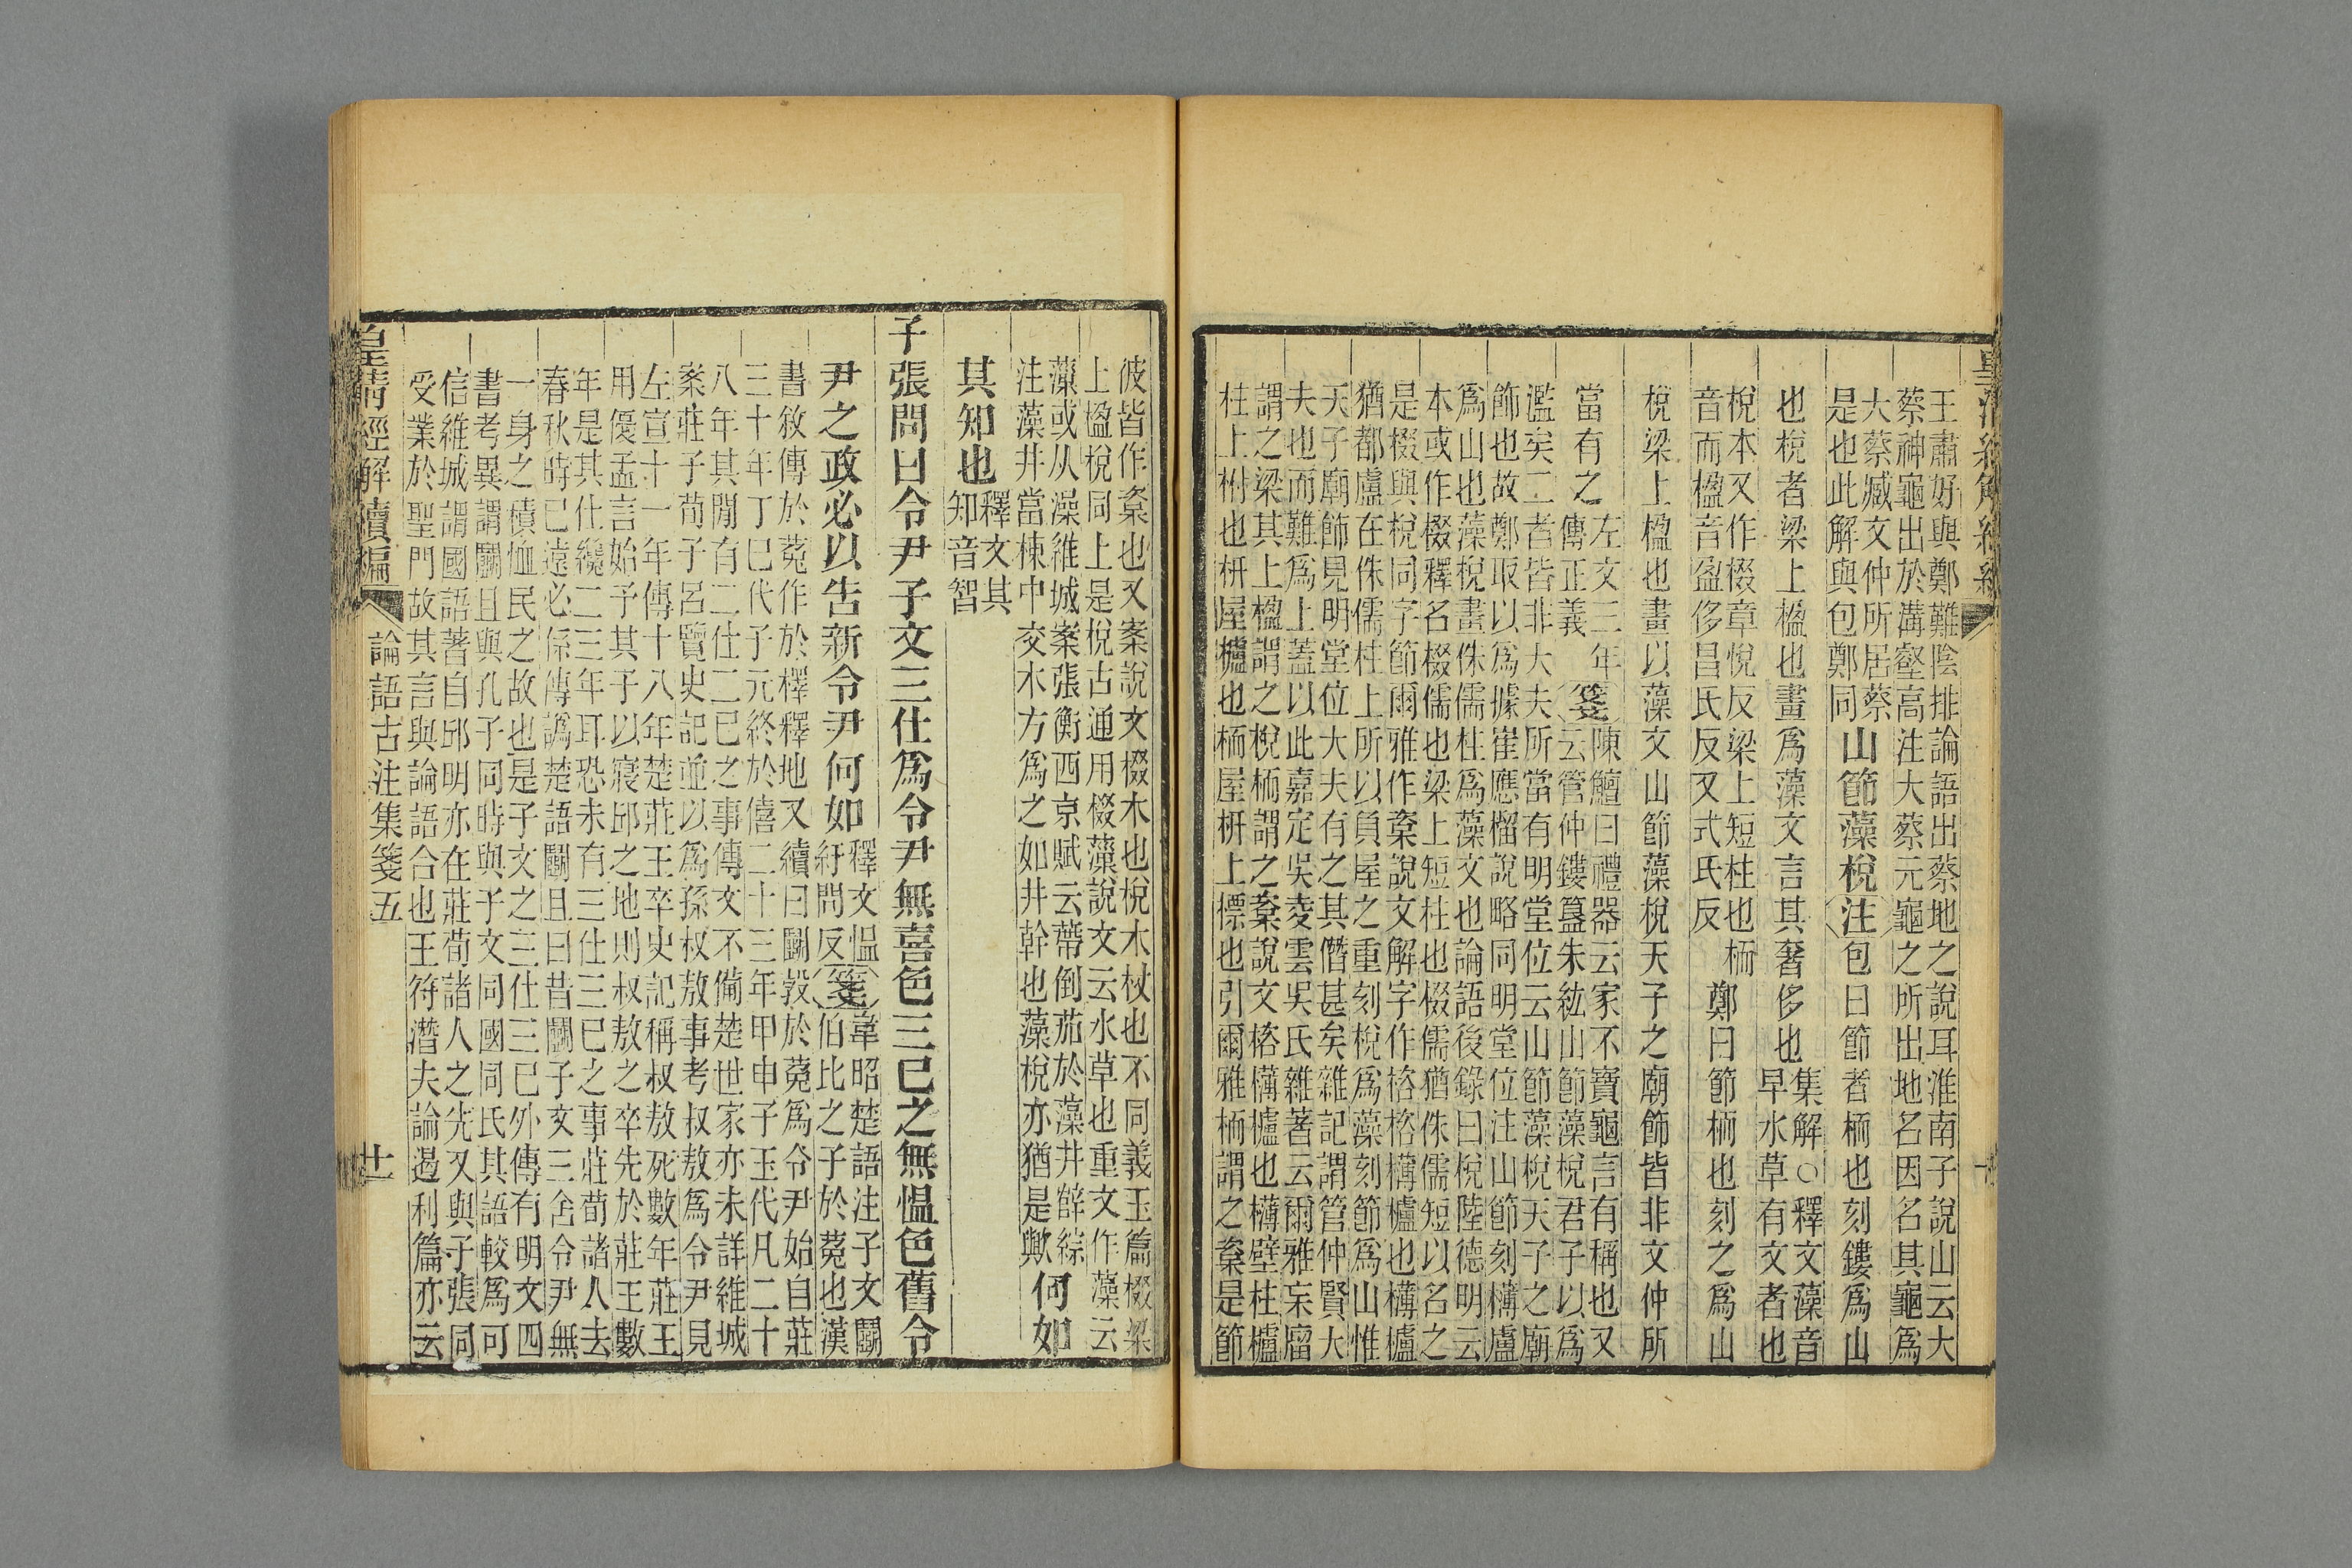 王肅好與鄭難陰排論語出蔡地之說耳淮南子說山云大
蔡神龜出於溝壑高注大蔡元龜之所出地名因名其龜爲
大蔡臧文仲所居蔡
是也此解與包鄭同
山節藻梲注包曰節者栭也刻鏤爲山
也梲者梁上楹也畫爲藻文言其奢侈也
集解○釋文藻音
早水草有文者也
梲本又作棳章悅反梁上短柱也栭
音而楹音盈侈昌氏反又式氏反
鄭曰節栭也刻之爲山
梲梁上楹也畫以藻文山節藻梲天子之廟飾皆非文仲所
當有之
左文二年
傳正義
箋
陳鱣曰禮器云家不寶龜言有稱也又
云管仲鏤簋朱紘山節藻梲君子以爲
濫矣二者皆非大夫所當有明堂位云山節藻梲天子之廟
飾也故鄭取以爲據崔應榴說略同明堂位注山節刻欂盧
爲山也藻梲畫侏儒柱爲藻文也論語後錄曰梲陸德明云
本或作棳釋名棳儒也梁上短柱也棳儒猶侏儒短以名之
是棳與梲同字節爾雅作楶說文解字作格格欂櫨也欂櫨
猶都盧在侏儒柱上所以負屋之重刻梲爲藻刻節爲山惟
天子廟飾見明堂位大夫有之其僭甚矣雜記謂管仲賢大
夫也而難爲上蓋以此嘉定吳夌雲吳氏雜著云爾雅杗廇
謂之梁其上楹謂之梲栭謂之楶說文格欂櫨也欂壁柱櫨
柱上柎也枅屋櫨也栭屋枅上標也引爾雅栭謂之楶是節
彼皆作楶也又案說文棳木也梲木杖也不同義玉篇棳梁
上楹梲同上是梲古通用棳薻說文云水草也重文作藻云
薻或从澡維城案張衡西京賦云蔕倒茄於藻井薛綜
注藻井當棟中交木方爲之如井幹也藻梲亦猶是歟
何如
其知也
釋文其
知音智
子張問曰令尹子文三仕爲令尹無喜色三已之無慍色舊令
尹之政必以告新令尹何如
釋文慍
紆問反
箋
韋昭楚語注子文鬬
伯比之子於菟也漢
書敘傳於菟作於檡釋地又續曰鬬穀於菟爲令尹始自莊
三十年丁巳代子元終於僖二十三年甲申子玉代凡二十
八年其閒有二仕二已之事傳文不備楚世家亦未詳維城
案莊子荀子呂覽史記並以爲孫叔敖事考叔敖爲令尹見
左宣十一年傳十八年楚莊王卒史記稱叔敖死數年莊王
用優孟言始予其子以寢邱之地則叔敖之卒先於莊王數
年是其仕纔二三年耳恐未有三仕三已之事莊荀諸人去
春秋時已遠必係傳譌楚語鬬且曰昔鬬子文三舍令尹無
一身之積恤民之故也是子文之三仕三已外傳有明文四
書考異謂鬬且與孔子同時與子文同國同氏其語較爲可
信維城謂國語著自邱明亦在莊荀諸人之先又與子張同
受業於聖門故其言與論語合也王符潛夫論遏利篇亦云
皇清經解續編
論語古注集箋五
十一